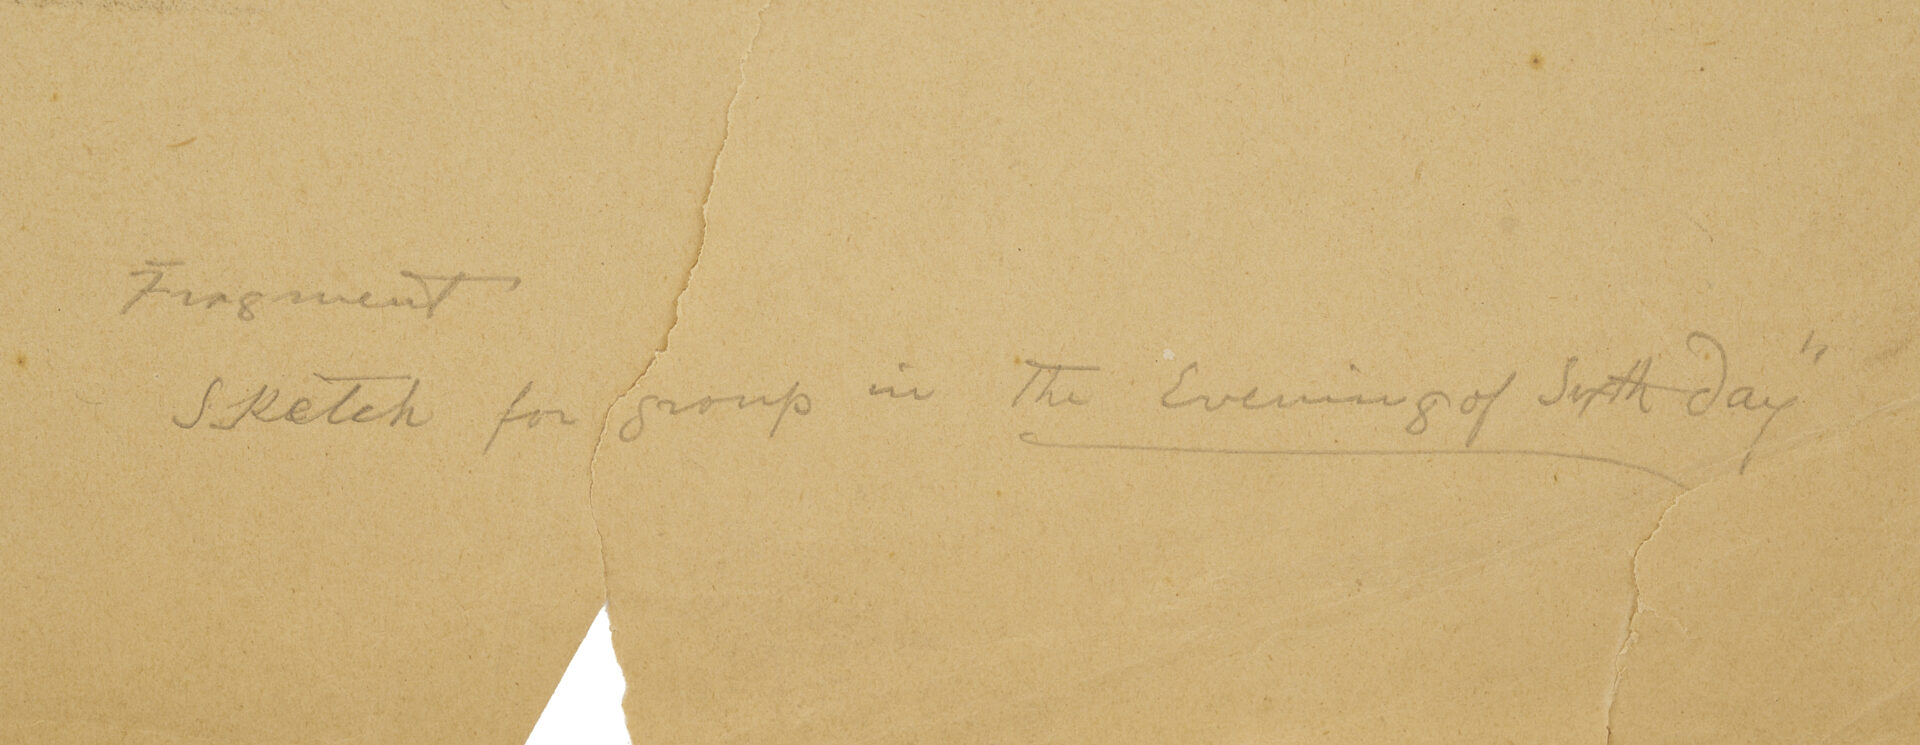 Fragment
Sketch for group in The Evening of Sixth Day"